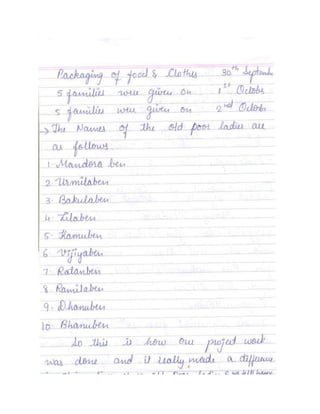 Packaging of food & Clothes 30th September
5 families were given on 1st Octobr
5 families were given on 2nd Octobr
→ The Names of the old poor ladies are
as follows.
1. Mandora ben
2. Urmilaben
3. Bakulaben
4. Lilaben
5. Kamuben
6. Vijiyaben
7. Ratanben
8. Ramilaben
9. Dhanuben
10. Bhanuben
So this is how our project work
was done and it really made a difference